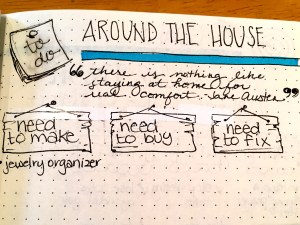 to
do
AROUND THE HOUSE
"there is nothing like
staying at home for
real comfort. - Jane Austen"
need
to make
need
to buy
need
to fix
• jewelry organizer